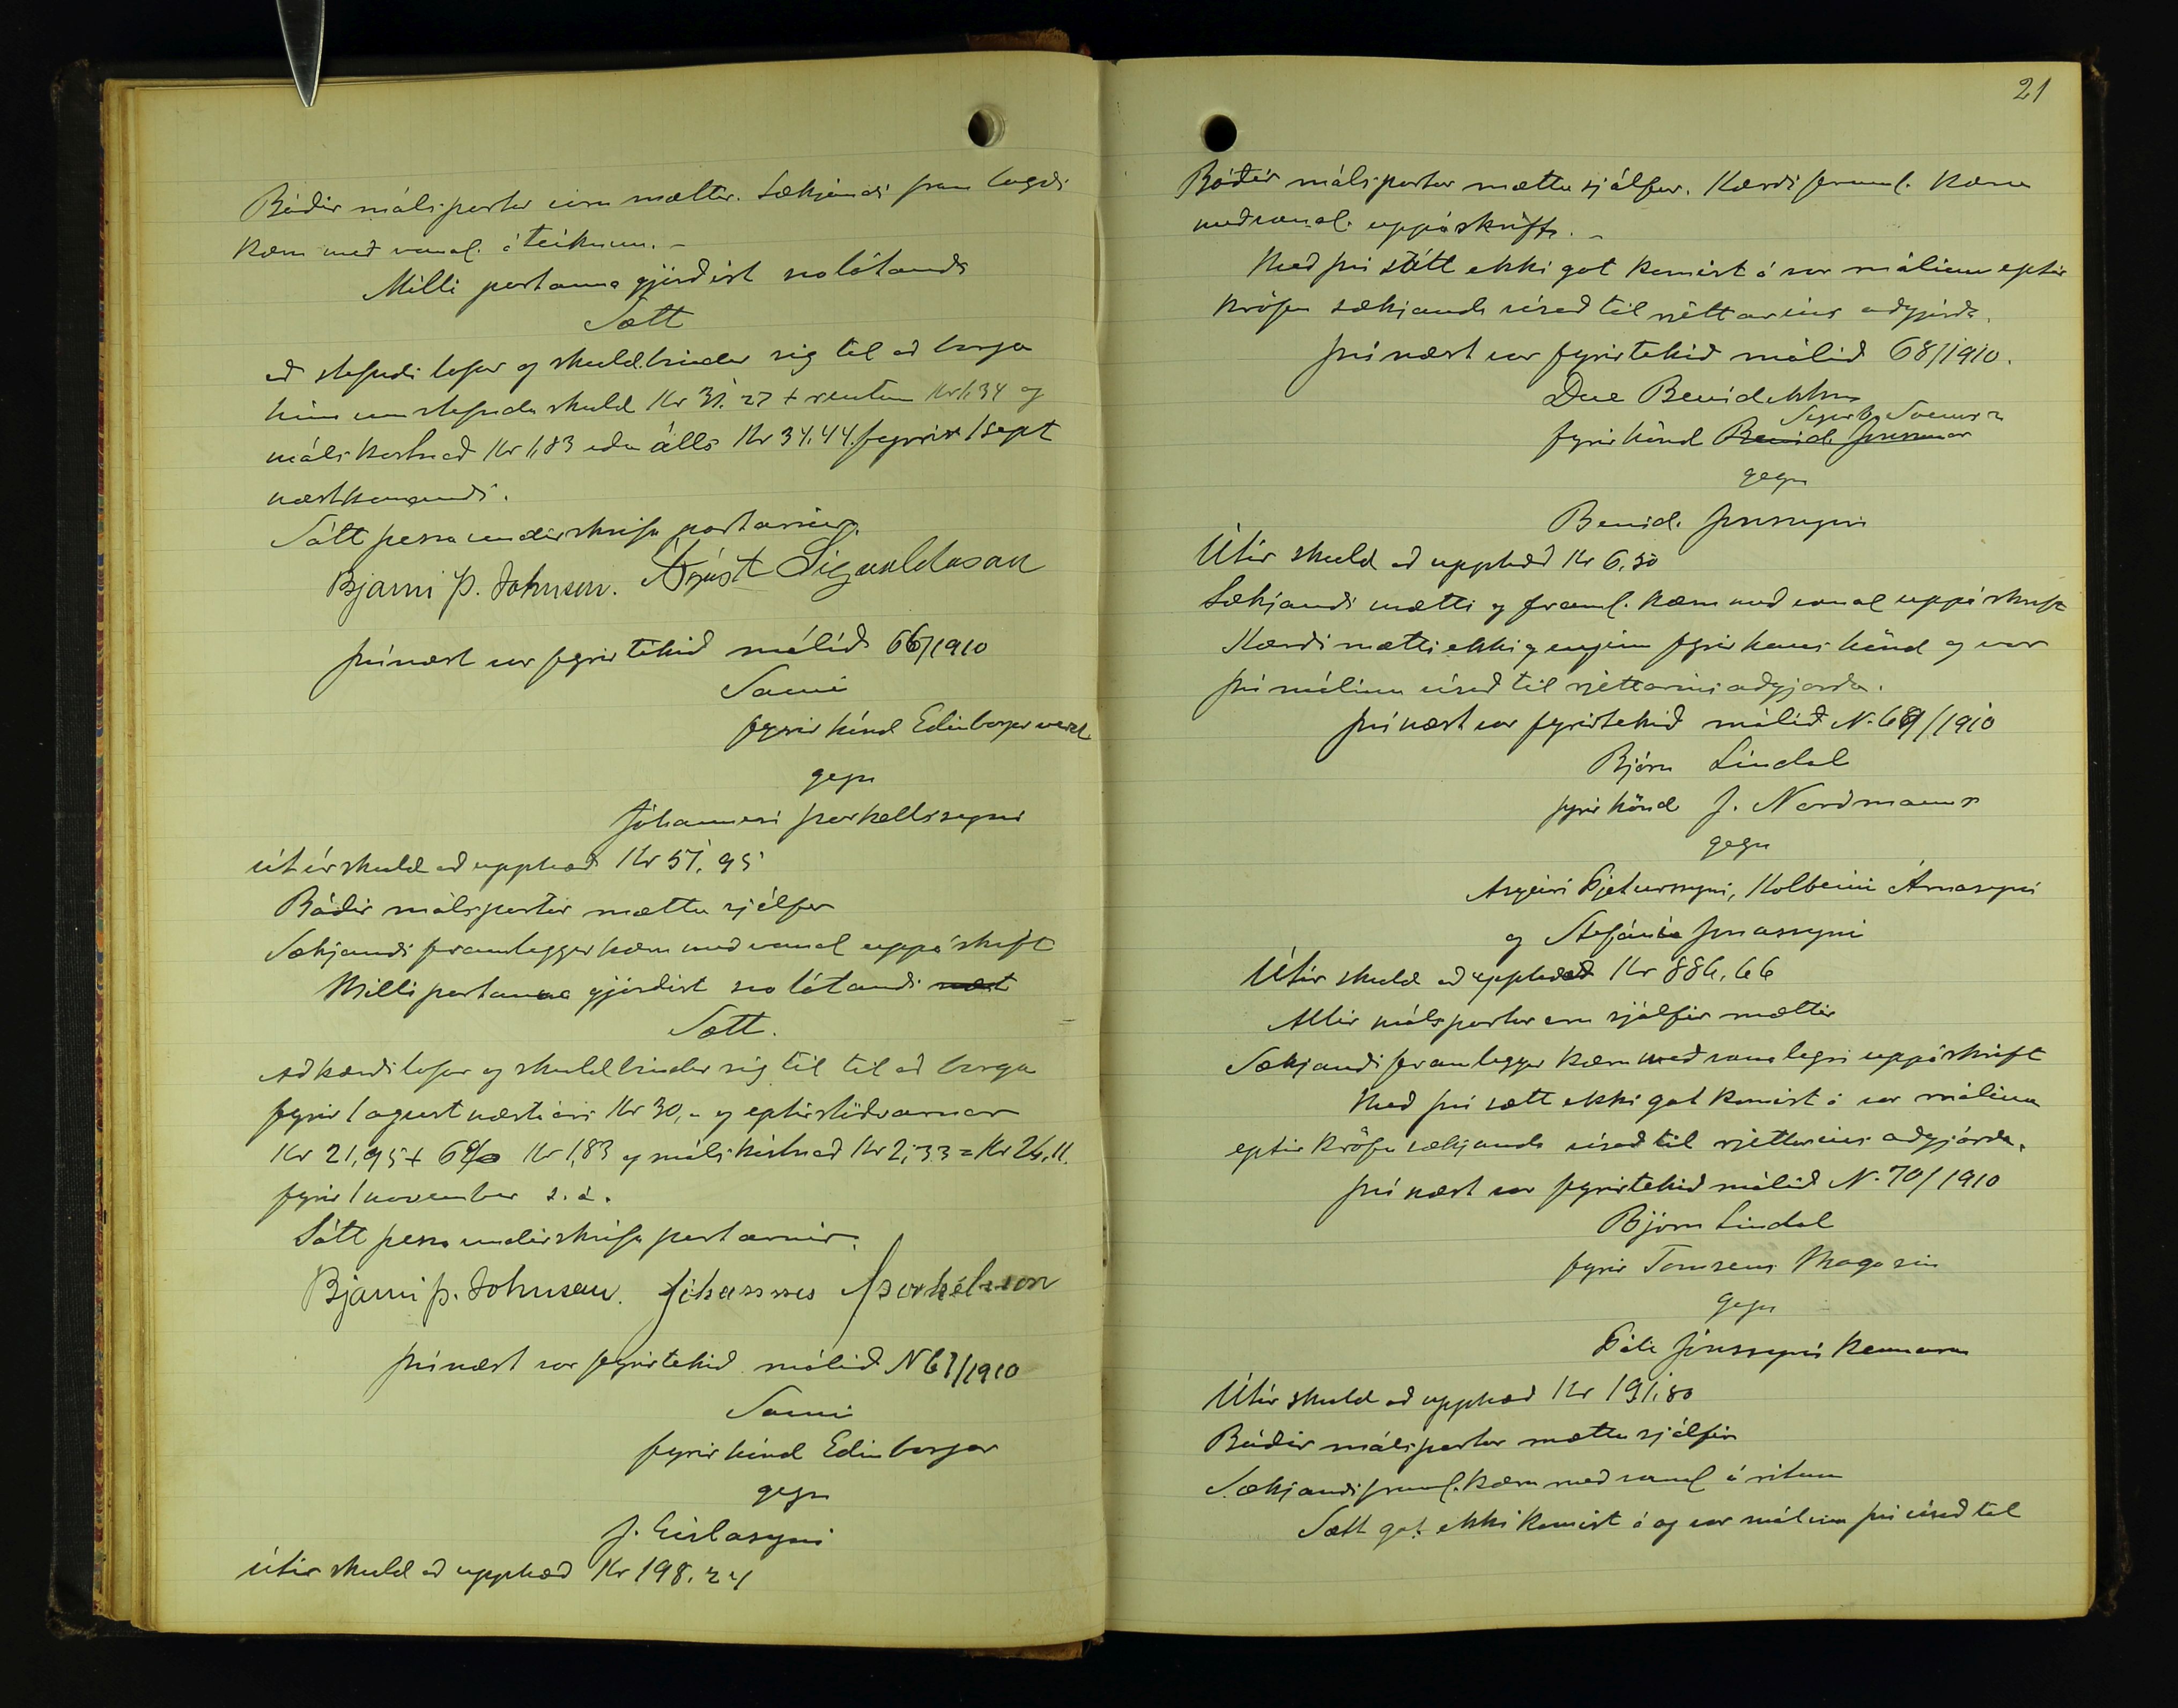 Báðir málspartar eru mættir. Sækjandi fram lagði
Kæru með vanal. áteiknun. –
Milli partanna gjörðist svolátandi
Sætt
að stefndi lofar og skuldbindur sig til að borga
hina umstefndu skuld Kr 31.27 + rentum Kr 1.34 og
málskostnað Kr 1,83 eða alls Kr 34.44. fyrir 1 sept
næstkomandi.
Sátt þessa undirskrifa partarnir.
Bjarni Þ. Johnson. Ágúst Sigvaldason
Þvínæst var fyrirtekið málið 66/1910
Sami
fyrir hönd Edinborgar verzl
gegn
Jóhannesi Þorkellssyni
útúr skuld að upphæð Kr 51,95
Báðir málspartar mættu sjálfir
Sækjandi framleggur kæru með vanal uppáskrift
Milli partanna gjörðist svolátandi
Sætt.
Að kærði lofar og skuldbindur sig til til að borga
fyrir 1 agust næst Kr 30,– og eptirstöðvarnar
Kr 21,95 + 6% Kr 1,83 og málskostnað Kr 2,33 = Kr 26,11.
fyrir 1 november s.á.
Sátt þessa undirskrifa partarnir.
Bjarni Þ. Johnson. Jóhannes Þorkelsson
Þvínæst var fyrirtekið málið N 67/1910
Sami
fyrir hönd Edinborgar
gegn
J. Gíslasyni
útúr skuld að upphæð Kr 198.24
21
Báðir málspartar mættu sjálfir. Kærði framl. Kæru
með vanal. uppáskrift. –
Með því sátt ekki gat komist á var málinu eptir
kröfu sækjanda vísað til réttarins aðgjörða.
Þvínæst var fyrirtekið málið 68/1910.
Due Benediktsson
Sigurb.
fyrir hönd Benid. Jónssonar
gegn
Benid. Jónssyni
Útúr skuld að upphæð Kr 6,50
Sækjandi mætti og framl. kæru með vanal uppáskrift
Kærði mætti ekki og enginn fyrir hans hönd og var
því málinu vísað til rjettarins aðgjörða.
Þvínæst var fyrirtekið málið N. 69/1910
Björn Lindal
fyrir hönd J. Nordmanns
gegn
Asgeiri Pjeturssyni, Kolbeini Árnasyni
og Stefáni Jónassyni
Útúr skuld að upphæð Kr 886,66
Allir málspartar eru sjálfir mættir
Sækjandi framleggur kæru með vanalegri uppáskrift
Með því sætt ekki gat komist á var málinu
eptir kröfu sækjanda vísað til rjettarins aðgjörða.
Þvínæst var fyrirtekið málið N. 70/1910
Björn Lindal
fyrir Tomsens Magasin
gegn
Páli Jónssyni kennara
Útúr skuld að upphæð Kr 191,80
Báðir málspartar mættu sjálfir
Sækjandi framl. kæru með vanal áritun
Sætt gat ekki komist á og var málinu því vísað til